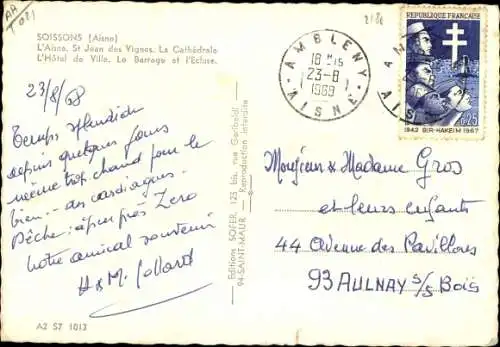 AA
T 081
2180
SOISSONS (Aisne)
L'Aisne. St Jean des Vignes. La Cathédrale
L'Hôtel de Ville. Le Barrage et l'Ecluse.
23/8/68
Temps splendide
depuis quelques jours
même trop chaud pour le
bien - des cardiaques.
Pêche: à peu près Zéro
notre amical souvenir
H & M.
A2 S7 1013
Editions SOFER, 125 bis, rue Garibaldi
94-SAINT-MAUR — Reproduction interdite
AMBLENY
18 H15
23-8
1968
AISNE
AM
AIS
REPUBLIQUE FRANÇAISE
0,25
1942 BIR-HAKEIM 1967
Monsieur & Madame Gros
et leurs enfants
44 Avenue des Pavillons
93 AULNAY s/s Bois